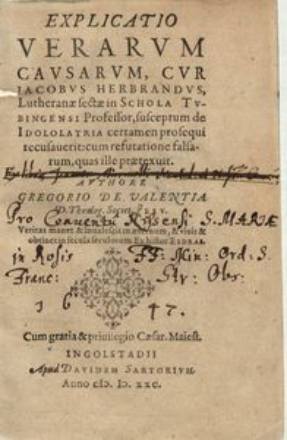 EXPLICATIO
VERARVM
CAVSARVM, CVR
IACOBVS HERBRANDVS,
Lutheranæ sectæ in SCHOLA TV-
BINGENSI Professor, susceptum de
IDOLOLATRIA certamen prosequi
recusauerit: cum refutatione falsa-
rum, quas ille prætexuit.
AVTHORE
GREGORIO DE VALENTIA
Pro Conventu Rosensi S. MARIÆ
Veritas manet & inualescit in æternum, & viuit &
obtinet in secula seculorum. Ex libro ESDRAE.
in Rosis FF: Min: Ord: S:
Franc: Str: Obs:
1 6 4 7.
Cum gratia & priuilegio Cæsar. Maiest.
INGOLSTADII
Apud DAVIDEM SARTORIVM.
Anno cIɔ. Iɔ. xxc.